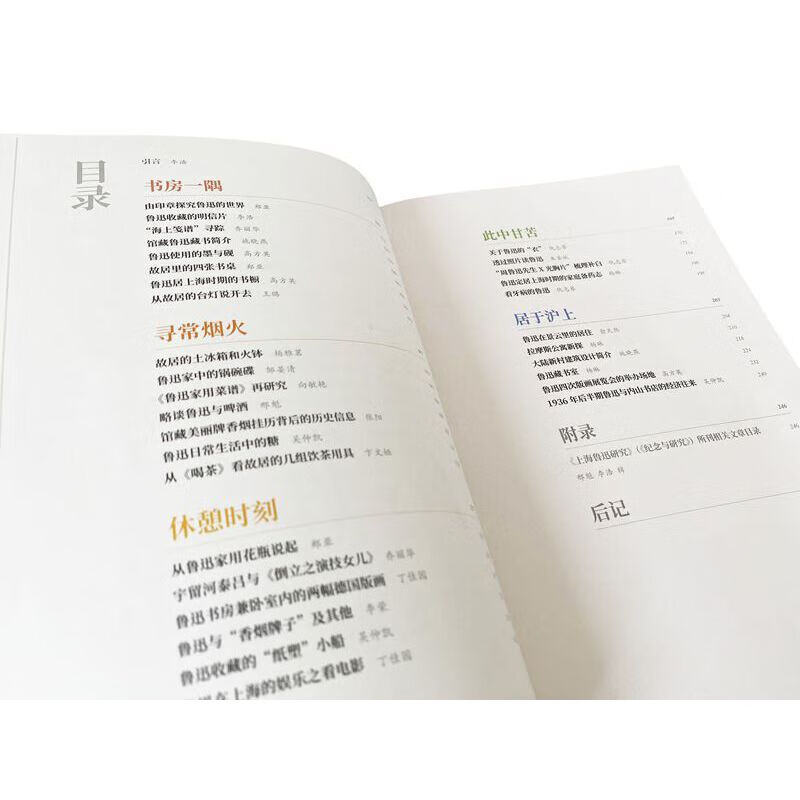 目录
引言 李浩
书房一隅
由印章探究鲁迅的世界 郑亚
鲁迅收藏的明信片 李浩
“海上笺谱”寻踪 乔丽华
馆藏鲁迅藏书简介 施晓燕
鲁迅使用的墨与砚 高方英
故居里的四张书桌 郑亚
鲁迅居上海时期的书橱 高方英
从故居的台灯说开去 王鸽
寻常烟火
故居的土冰箱和火钵 杨雅茗
鲁迅家中的锅碗碟 邹晏清
《鲁迅家用菜谱》再研究 向敏艳
略谈鲁迅与啤酒 邢魁
馆藏美丽牌香烟挂历背后的历史信息 张阳
鲁迅日常生活中的糖 吴仲凯
从《喝茶》看故居的几组饮茶用具 卞文娟
休憩时刻
从鲁迅家用花瓶说起 郑亚
宇留河泰吕与《倒立之演技女儿》 乔丽华
鲁迅书房兼卧室内的两幅德国版画 丁佳园
鲁迅与“香烟牌子”及其他 李荣
鲁迅收藏的“纸塑”小船 吴仲凯
在上海的娱乐之看电影 丁佳园
此中甘苦
关于鲁迅的“衣” 仇志琴 170
透过照片读鲁迅
“周鲁迅先生X光胸片”梳理补白 仇志琴
鲁迅定居上海时期的家庭备药志 杨琳
看牙病的鲁迅 仇志琴
居于沪上 203
鲁迅在景云里的居住 204
拉摩斯公寓新探 杨琳 210
大陆新村建筑设计简介 施晓燕
鲁迅藏书室 杨琳
鲁迅四次版画展览会的举办场地 高方英
1936年后半期鲁迅与内山书店的经济往来 吴仲凯 240
附录 246
《上海鲁迅研究》(《纪念与研究》)所刊相关文章目录 246
邢魁 李浩 辑
后记